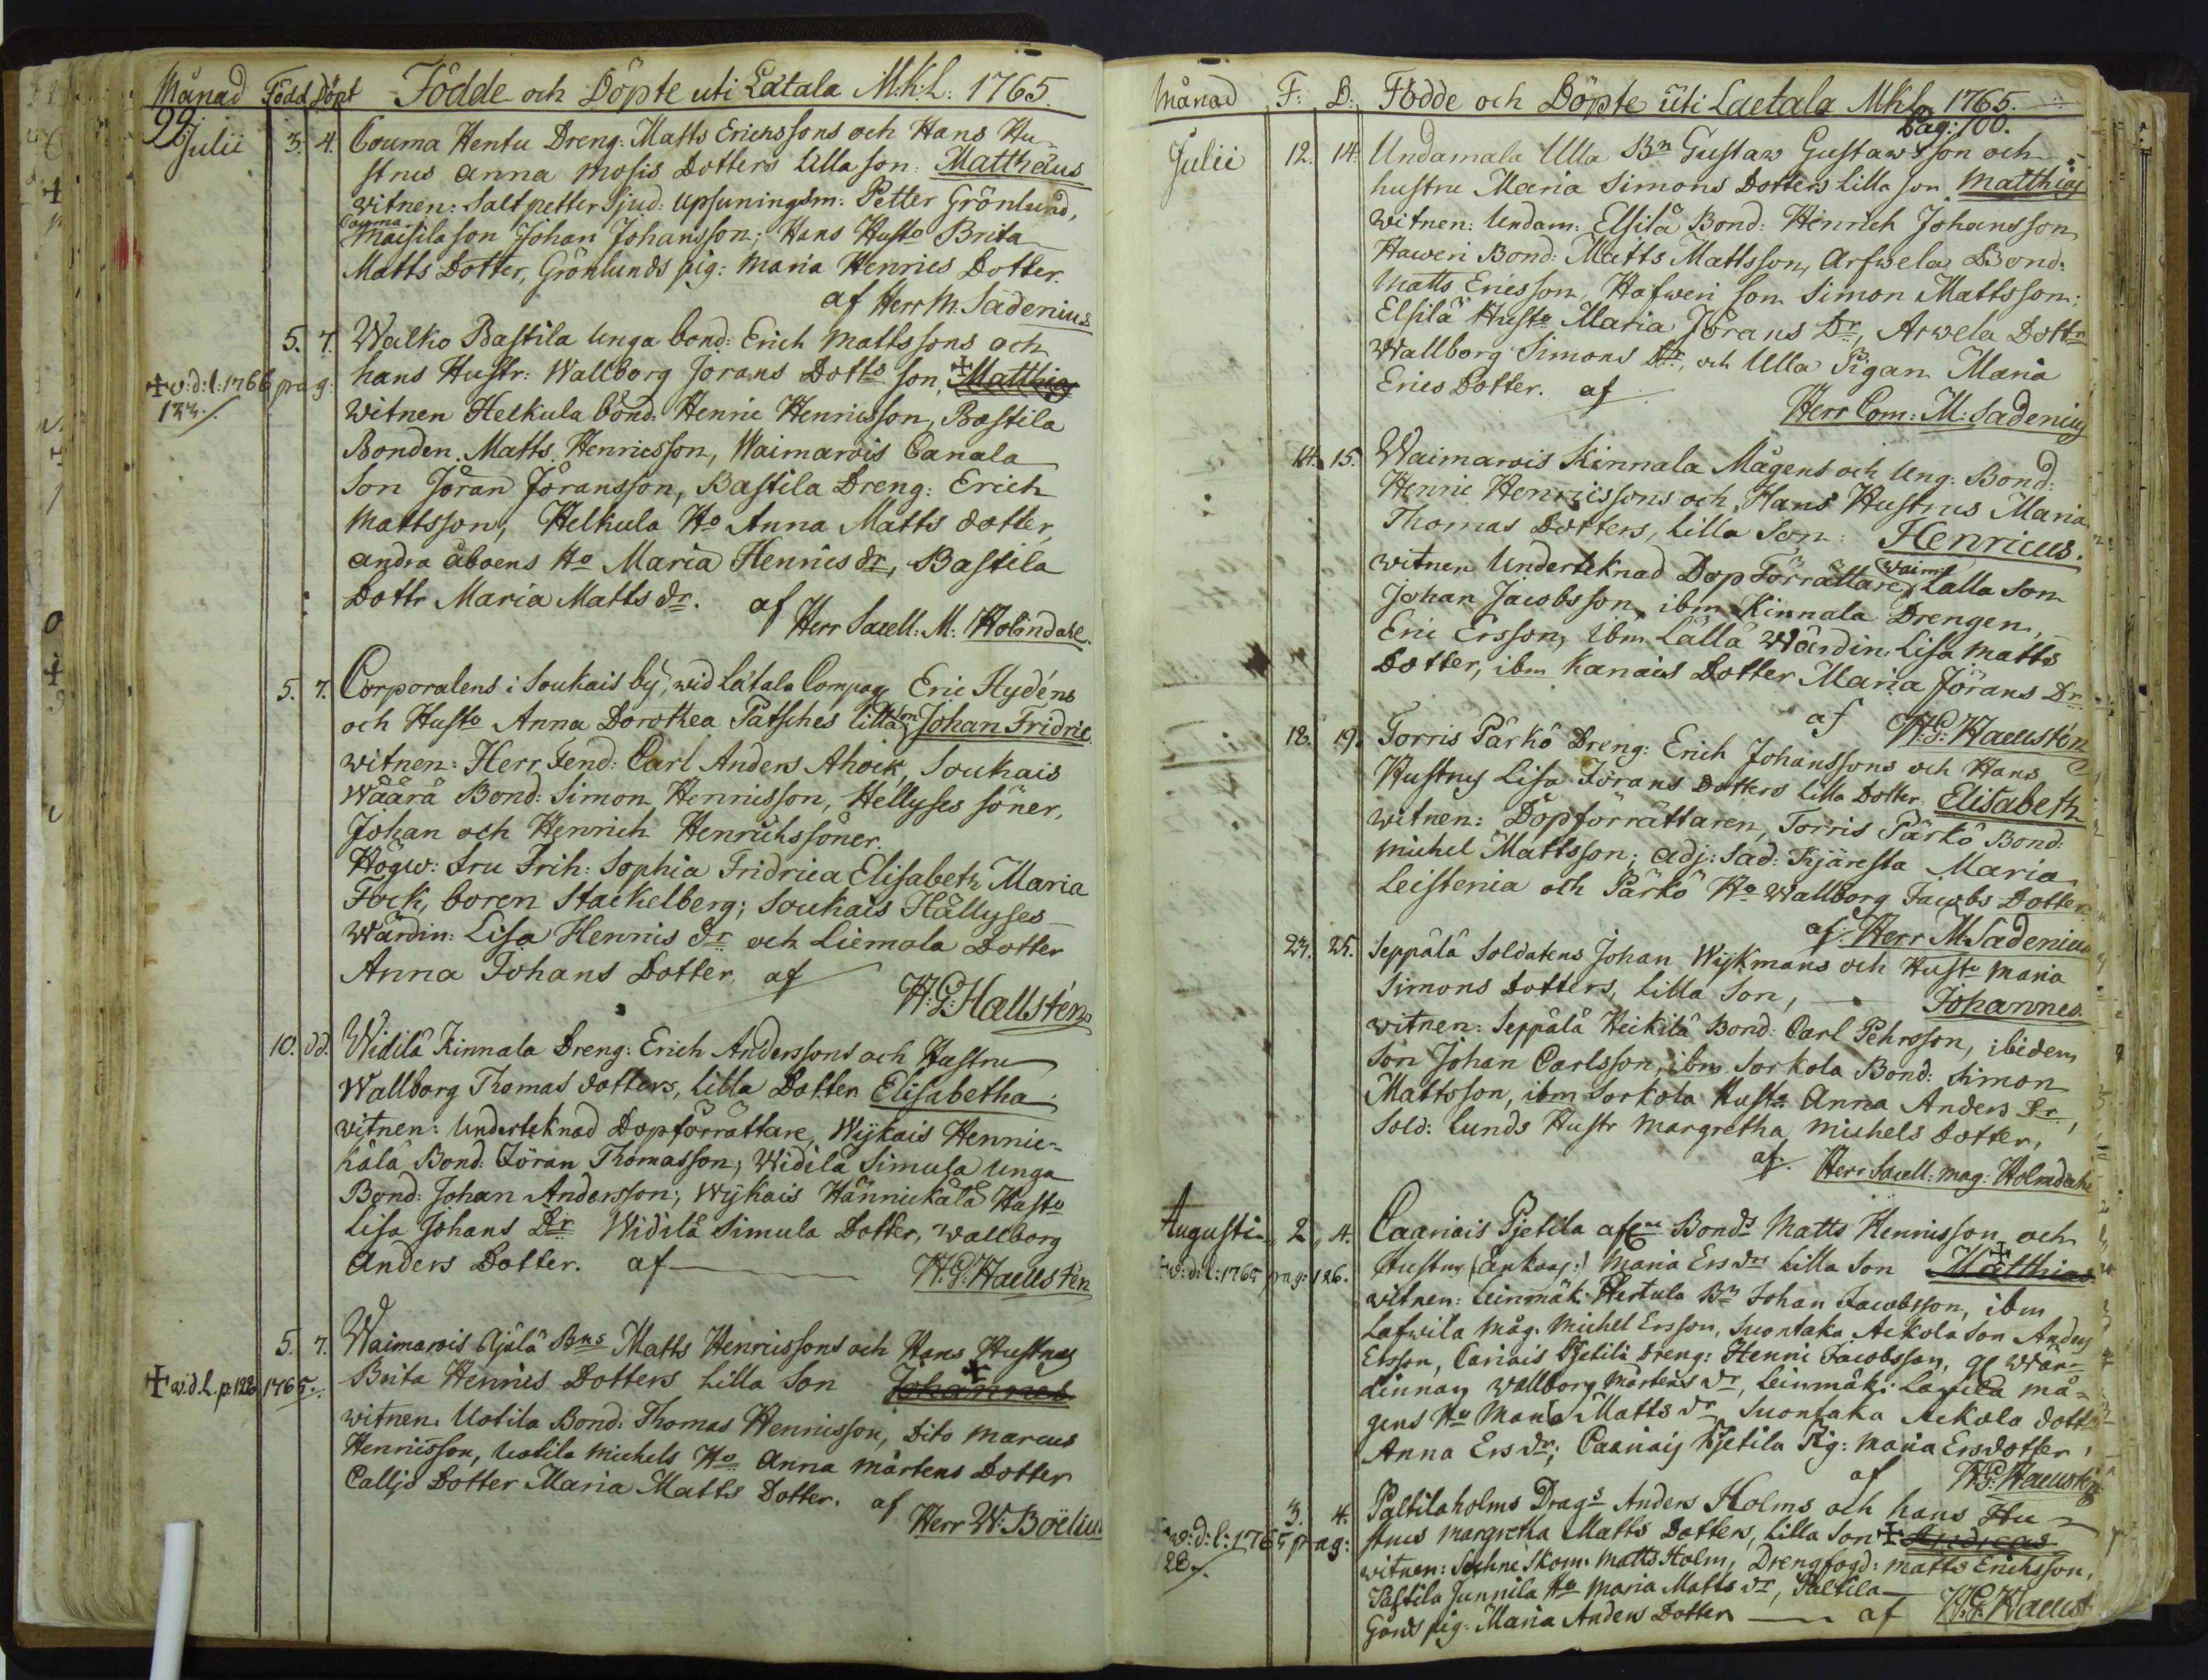 Månad Född Döpt Födde och Döpte uti Lätala M:k:L: 1765.
99
Julii 3. 4. Couma Hentu Dreng: Matts Erichssons och Hans Hu-
strus Anna Mosis Dotters lilla son: Matthäus
witnen: Saltpetter Sjud: upsuningsm: Petter Grönlund,
Couma
Maisila son Johan Johansson; Hans Husto Brita
Matts Dotter, Grönlunds pig: Maria Henrics Dotter.
af Herr M: Sadenius
5. 7. Walko Bastila Unga bond: Erich Mattssons och
hans Hustr: Wallborg Jörans Dotts son, Matthias
✝ v:d:l: 1766 pag:
133.
witnen Helkula bond: Henric Henricsson, Bastila
Bonden Matts Henricsson, Waimarois Canala
Son Jöran Jöransson, Bastila Dreng: Erich
Mattsson, Helkula Ho Anna Matts dotter,
andra åboens Ho Maria Henrics dr, Bastila
Dottr Maria Matts dr. af
Herr Sacell: M: Holmdahl.
5. 7. Corporalens i Soukais by, wid Lätala Compag Eric Hydéns
och Husto Anna Dorothea Patsches lilla son Johan Fridric.
witnen: Herr Fend: Carl Anders Ahock, Soukais
Wäärä Bond: Simon Henricsson, Hellyses söner,
Johan och Henrich Henrichssöner.
Högw: fru Frih: Sophia Fridrica Elisabeth Maria
Fock, boren Stackelberg; Soukais Hällyses
Wärdin: Lisa Henrics dr och Liemola Dotter
Anna Johans Dotter, af
H:G:Hallstén
10. dd. Widilä Kinnala Dreng: Erich Anderssons och Hustru
Wallborg Thomas dotters, lilla Dotter Elisabetha
witnen: Underteknad Dopförrättare, Wijkais Hennic-
kälä Bond: Jöran Thomasson; Widilä Simula unga
Bond: Johan Andersson; Wijkais Hännickälä Husto
Lisa Johans Dr Widilä Simula Dotter, Wallborg
Anders Dotter. af
H:G:Haellstén
5. 7. Waimarois Äjälä Bns Matts Henricssons och Hans Hustrus
Brita Henrics Dotters Lilla Son Johannes
✝ v.d.l. p. 128 1765.
witnen. Uotila Bond: Thomas Henricsson, Dito Marcus
Henricsson, Uotila Michels Ho Anna Mårtens Dotter
Callis Dotter Maria Matts Dotter. af
Herr W: Boëlius
Månad F: D: Födde och Döpte uti Laetala Mkl 1765.
Pag: 100.
Julii 12. 14. Undamala Ulla Bn Gustaw Gustawsson och
hustru Maria Simons Dotters lilla son Matthias
witnen: Undam: Elsilä Bond: Hinrich Johansson
Haweri Bond: Matts Mattsson, Arfwela Bond:
Matts Ericsson, Hafweri Son Simon Mattsson;
Elsilä Husto Maria Jörans Dr, Arwela Dottr
Wallborg Simons Dr, och Ulla Pigan Maria
Erics Dotter. af
Herr Com: M: Sadenius
14. 15. Waimarois Kinnala Mågens och Ung. Bond:
Henric Henricssons och Hans Hustrus Maria
Thomas Dotters, lilla Son: Henricus.
witnen Underteknad Dop Förrättare, Waim: Lalla Son
Johan Jacobsson, ibm Kinnala Drengen,
Eric Ersson, ibm Lalla Wärdin: Lisa Matts
Dotter, ibm Kanais Dotter Maria Jörans Dr
af H:G:Haellstén
18. 19. Torris Pärkö Dreng: Erich Johanssons och Hans
Hustrus Lisa Jörans Dotters lilla Dotter Elisabeth
witnen: Dopförrättaren, Torris Pärkö Bond:
Michel Mattsson; adj: Sad: Kjäresta Maria
Leistenia och Pärkö Ho Wallborg Jacobs Dotter
af: Herr M: Sadenius
23. 25. Seppälä Soldatens Johan Wijkmans och Husto Maria
Simons Dotters, lilla Son, Johannes
witnen: Seppälä Heikilä Bond: Carl Pehrsson, ibidem
Son Johan Carlsson, ibm Sorkola Bond: Simon
Mattsson, ibm Sorkola Husto Anna Anders Dr,
Sold: Lunds Hustr Margretha Michels Dotter,
af. Herr Sacell: Mag: Holmdahl
Augusti 2. 4. Cagniais Pjetila Bonds Matts Henricsson och
✝ v:d:l: 1765 pag: 126. Hustrus (Enkas:) Maria Ers dr Lilla Son Matthias
witnen: Leinmäk: Pertula Bn Johan Jacobsson, ibm
Lafwila Måg. Michel Ersson, Suontaka Aekola Son Anders
Ersson, Cariais Pjetilä Dreng: Henric Jacobsson, Wär-
dinnan Wallborg Mårtens dr, Leinmäki Lawila må-
gens Ho Maria Matts dr Suontaka Aekola dotter
Anna Ers dr; Caariais Pjetila Pig: Maria Ersdotter,
af H:G:Haellstén
3. 4. Paltilaholms Drags Anders Holms och hans Hu-
strus Margretha Matts Dotters, lilla Son ✝ Andreas
✝ v:d:l: 1765 pag:
128.
witnen: Skom: Matts Holm, Drengfogd: Matts Erichsson,
Paltila Junnila Ho Maria Matts dr, Paltila
Gårds pig: Maria Anders Dotter af H:G:Haellst